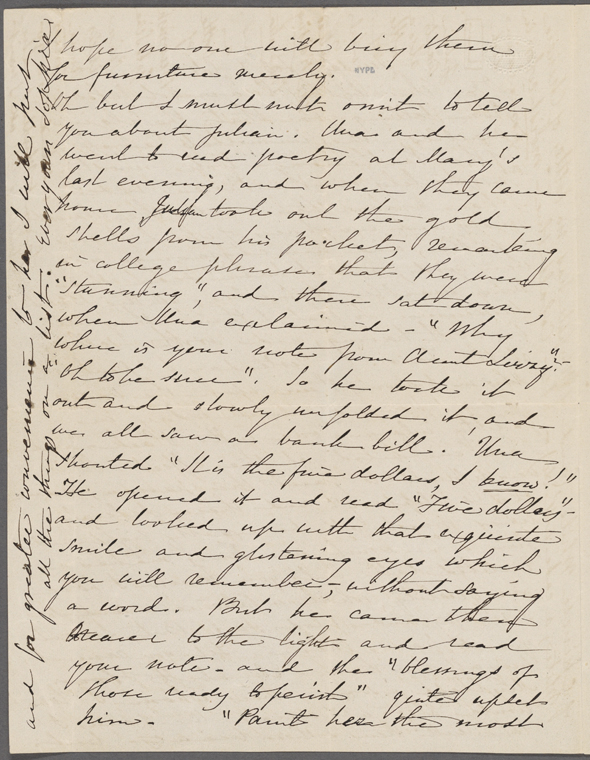 hope no one will buy them
for furniture merely.
NYPL
Oh but I must not omit to tell
you about Julian. Una and he
went to read poetry at Mary's
last evening, and when they came
home Julian took out the gold
shells from his pocket, remarking
in college phrase that they were
"stunning", and then sat down,
when Una exclaimed - "Why
where is your note from Aunt Lizzy"?-
"Oh to be sure". So he took it
out and slowly unfolded it, and
we all saw a bank bill. Una
shouted "It is the five dollars, I know!"
He opened it and read "Five dollars"-
and looked up with that exquisite
smile and glistening eyes which
you will remember, without saying
a word. But he came then
nearer to the light and read
your note - and the "blessings of
those ready to perish" quite upset
him - "Paint her the most
and for greater convenience to her I will put
all the things on a list. Ever yours Sophie